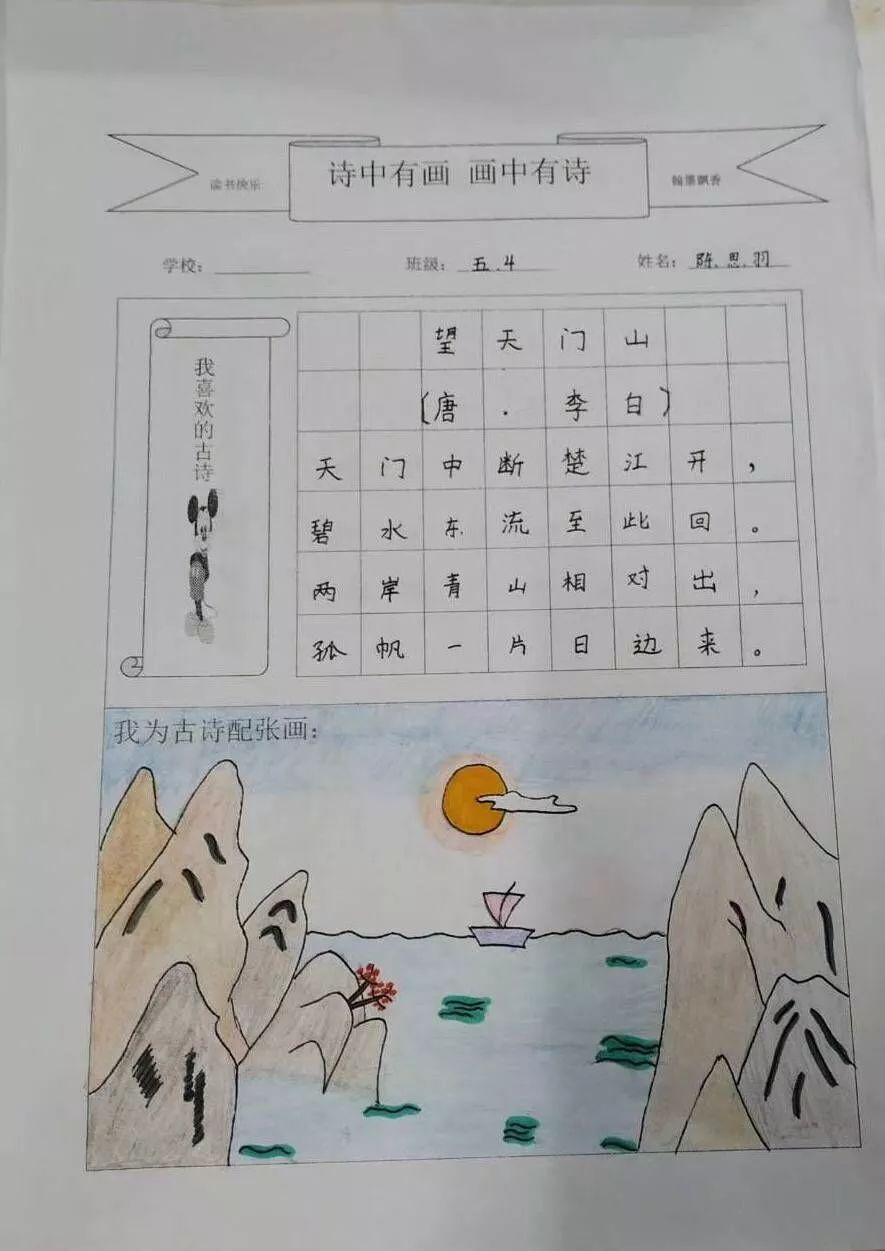 读书快乐
诗中有画 画中有诗
翰墨飘香
学校：
班级：五.4
姓名：陈.思.羽
我喜欢的古诗
望天门山
(唐.李白)
天门中断楚江开，
碧水东流至此回。
两岸青山相对出，
孤帆一片日边来。
我为古诗配张画：